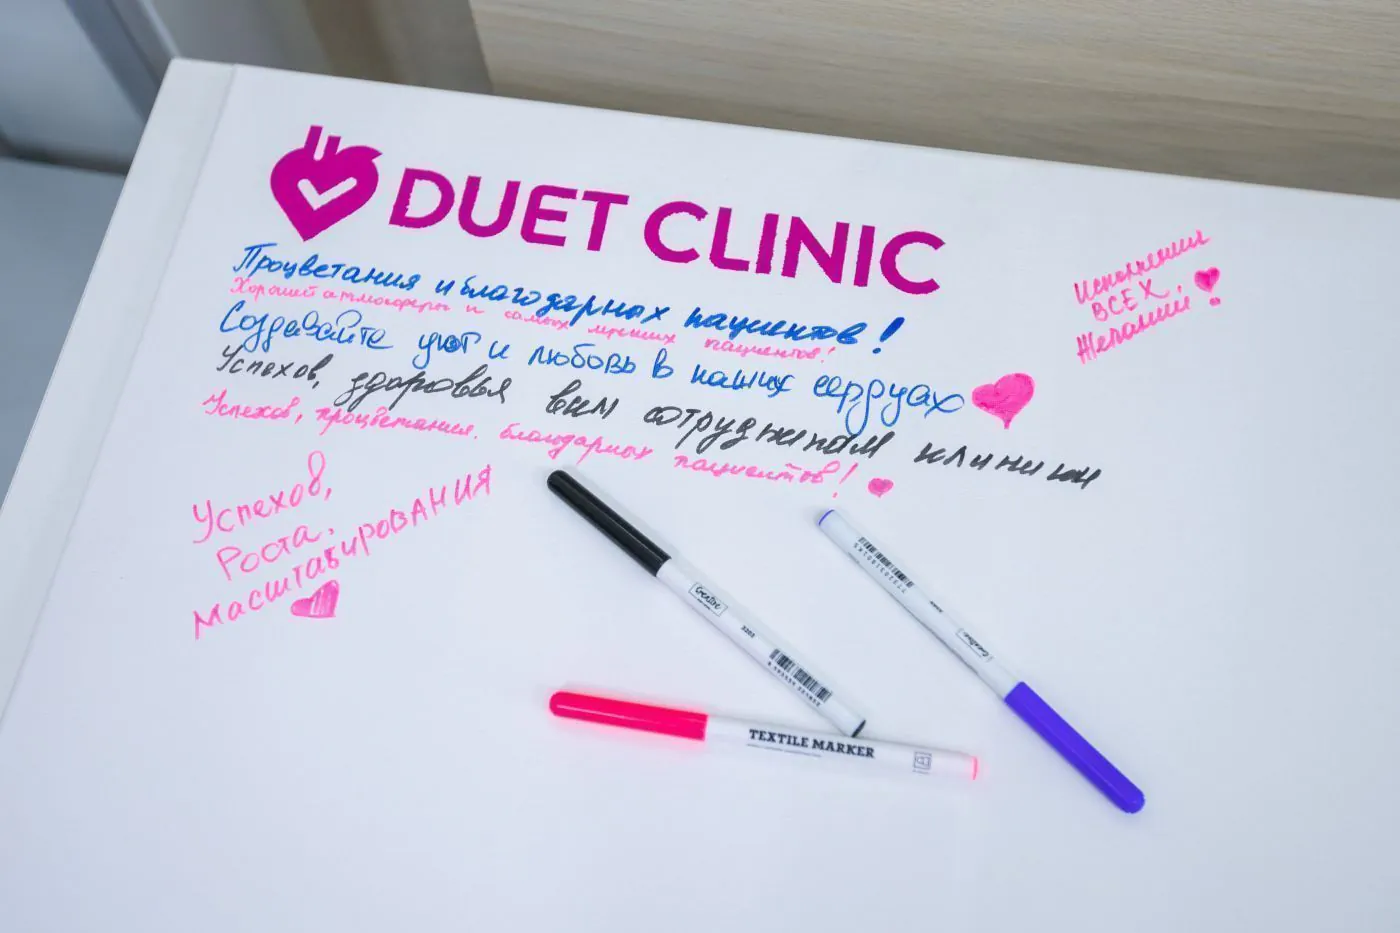 DUET CLINIC
Процветания и благодарных пациентов!
Хорошей атмосферы и самых лучших пациентов!
Создавайте уют и любовь в наших сердцах
Успехов, здоровья всем сотрудникам клиники
Успехов, процветания, благодарных пациентов!
Исполнения
ВСЕХ
Желаний!
Успехов,
Роста,
Масштабирования
Creative
3202
Creative
TEXTILE MARKER